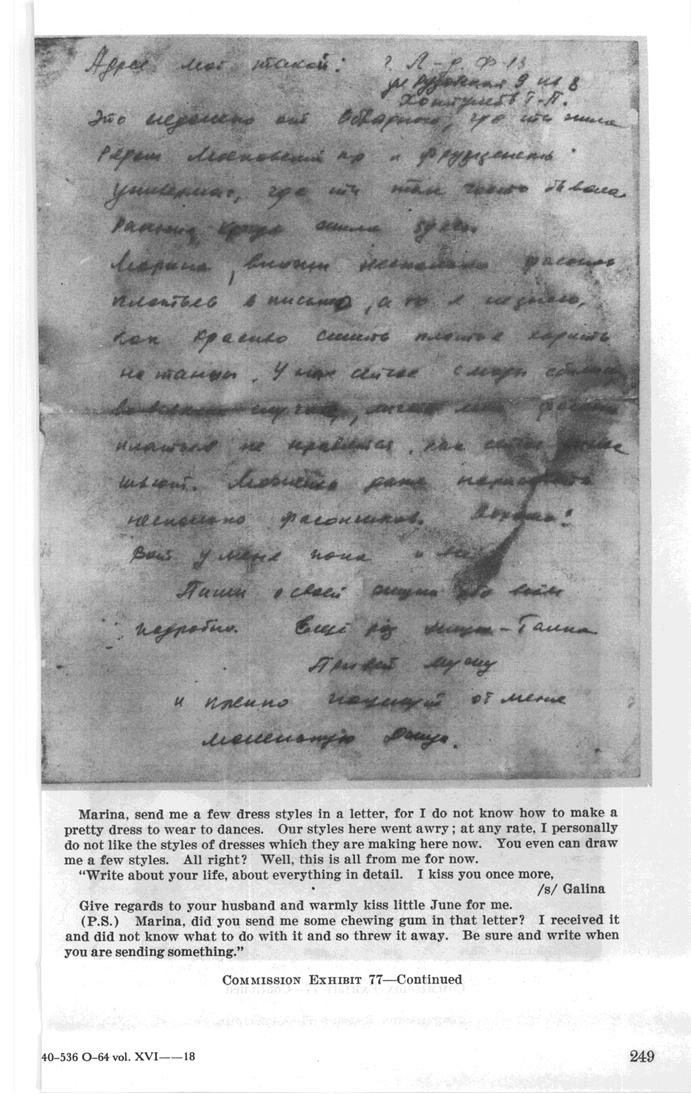 Адрес мой такой: г. Л-д. Ф-13
9 кв 8
Это недалеко от Обводного, где ты жила
рядом Московский пр и Фрунзенский
универмаг, где ты так часто бывала
раньше, когда жила здесь
Марина, вложи несколько фасонов
платьев в письмо, а то я не знаю,
как красиво сшить платье ходить
на танцы. У нас сейчас с моды
во всяком случае, лично мне фасоны
платьев не нравятся, как сейчас
шьют. Можешь даже нарисовать
несколько фасончиков. Хорошо?
Вот у меня пока и все
Пиши о своей жизни обо всем
подробно. Ещё раз целую - Галина
Привет мужу
и крепко поцелуй от меня
маленькую Джун.
Marina, send me a few dress styles in a letter, for I do not know how to make a
pretty dress to wear to dances. Our styles here went awry; at any rate, I personally
do not like the styles of dresses which they are making here now. You even can draw
me a few styles. All right? Well, this is all from me for now.
"Write about your life, about everything in detail. I kiss you once more,
/s/ Galina
Give regards to your husband and warmly kiss little June for me.
(P.S.) Marina, did you send me some chewing gum in that letter? I received it
and did not know what to do with it and so threw it away. Be sure and write when
you are sending something."
COMMISSION EXHIBIT 77—Continued
40-536 O-64 vol. XVI——18
249